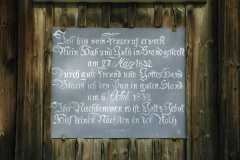 Ich bin vom Feuer auf erweckt
Mein Hab und Gutt in Brand gesteckt
am 27. May 1832
Durch gute Freund und Gottes Hand
Bracht ich den Bau in guten Stand
am 6. Octob. 1832
Ihr Nachkommen es ist Gotts Gebot
Helf deinen Nächsten in der Noth